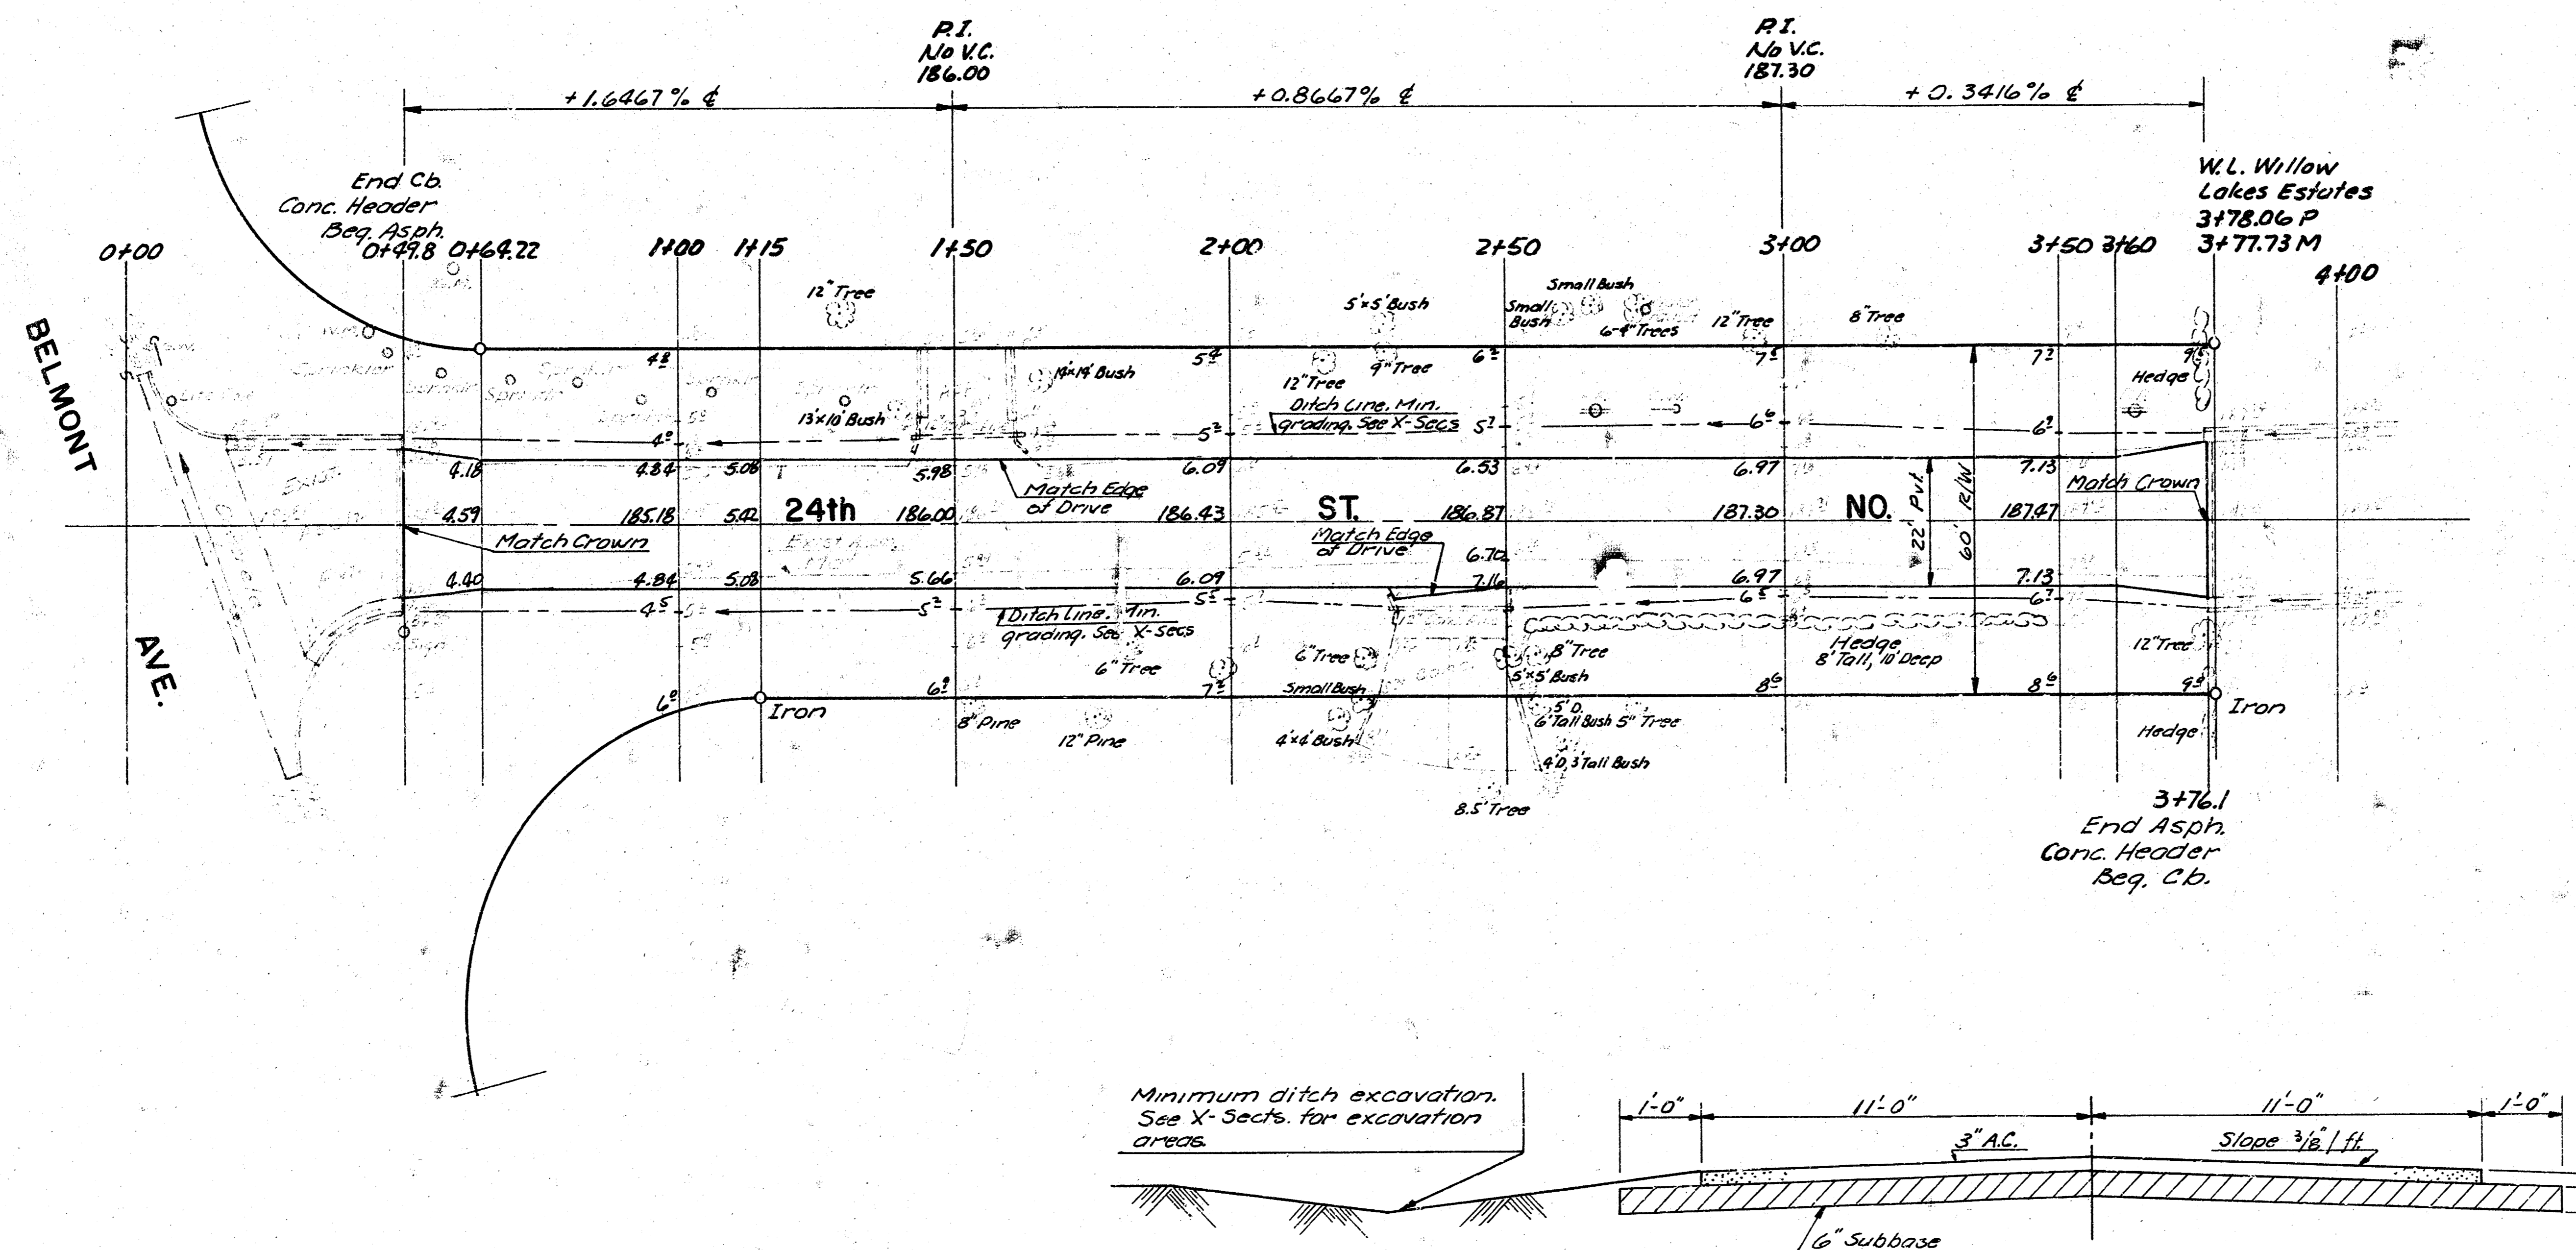 P.I.
No V.C.
186.00
P.I.
No V.C.
187.30
+1.6467% ℄
+0.8667% ℄
+0.3416% ℄
End Cb.
Conc. Header
Beg. Asph.
W.L. Willow
Lakes Estates
3+78.06 P
3+77.73 M
0+00
0+49.8
0+64.22
1+00
1+15
1+50
2+00
2+50
3+00
3+50
3+60
4+00
BELMONT
AVE.
12" Tree
5'x5' Bush
Small Bush
Small
Bush
6-4" Trees
12" Tree
8" Tree
14'x14' Bush
12" Tree
9" Tree
Hedge
13'x10' Bush
Ditch Line. Min.
grading. See X-Secs
4.18
4.84
5.08
5.98
6.09
6.53
6.97
7.13
Match Edge
of Drive
22' Pvt.
60' R/W
Match Crown
4.59
185.18
5.42
24th
186.00
186.43
ST.
186.87
187.30
NO.
187.47
Match Crown
Match Edge
of Drive
6.70
4.40
4.84
5.08
5.66
6.09
7.16
6.97
7.13
Ditch Line. Min.
grading. See X-Secs
Hedge
8' Tall, 10' Deep
6" Tree
6" Tree
8" Tree
12" Tree
5'x5' Bush
Small Bush
Iron
8" Pine
12" Pine
4'x4' Bush
5' D.
6' Tall Bush
5" Tree
4'D, 3' Tall Bush
8.5' Tree
Iron
Hedge
3+76.1
End Asph.
Conc. Header
Beg. Cb.
Minimum ditch excavation.
See X-Sects. for excavation
areas.
1'-0"
11'-0"
11'-0"
1'-0"
3" A.C.
Slope 3/8"/ft.
6" Subbase